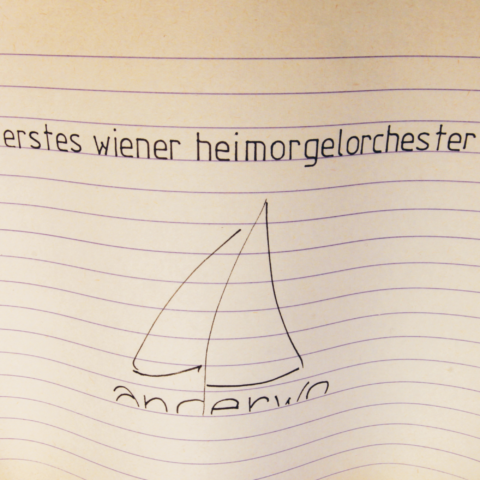 erstes wiener heimorgelorchester
anderwo